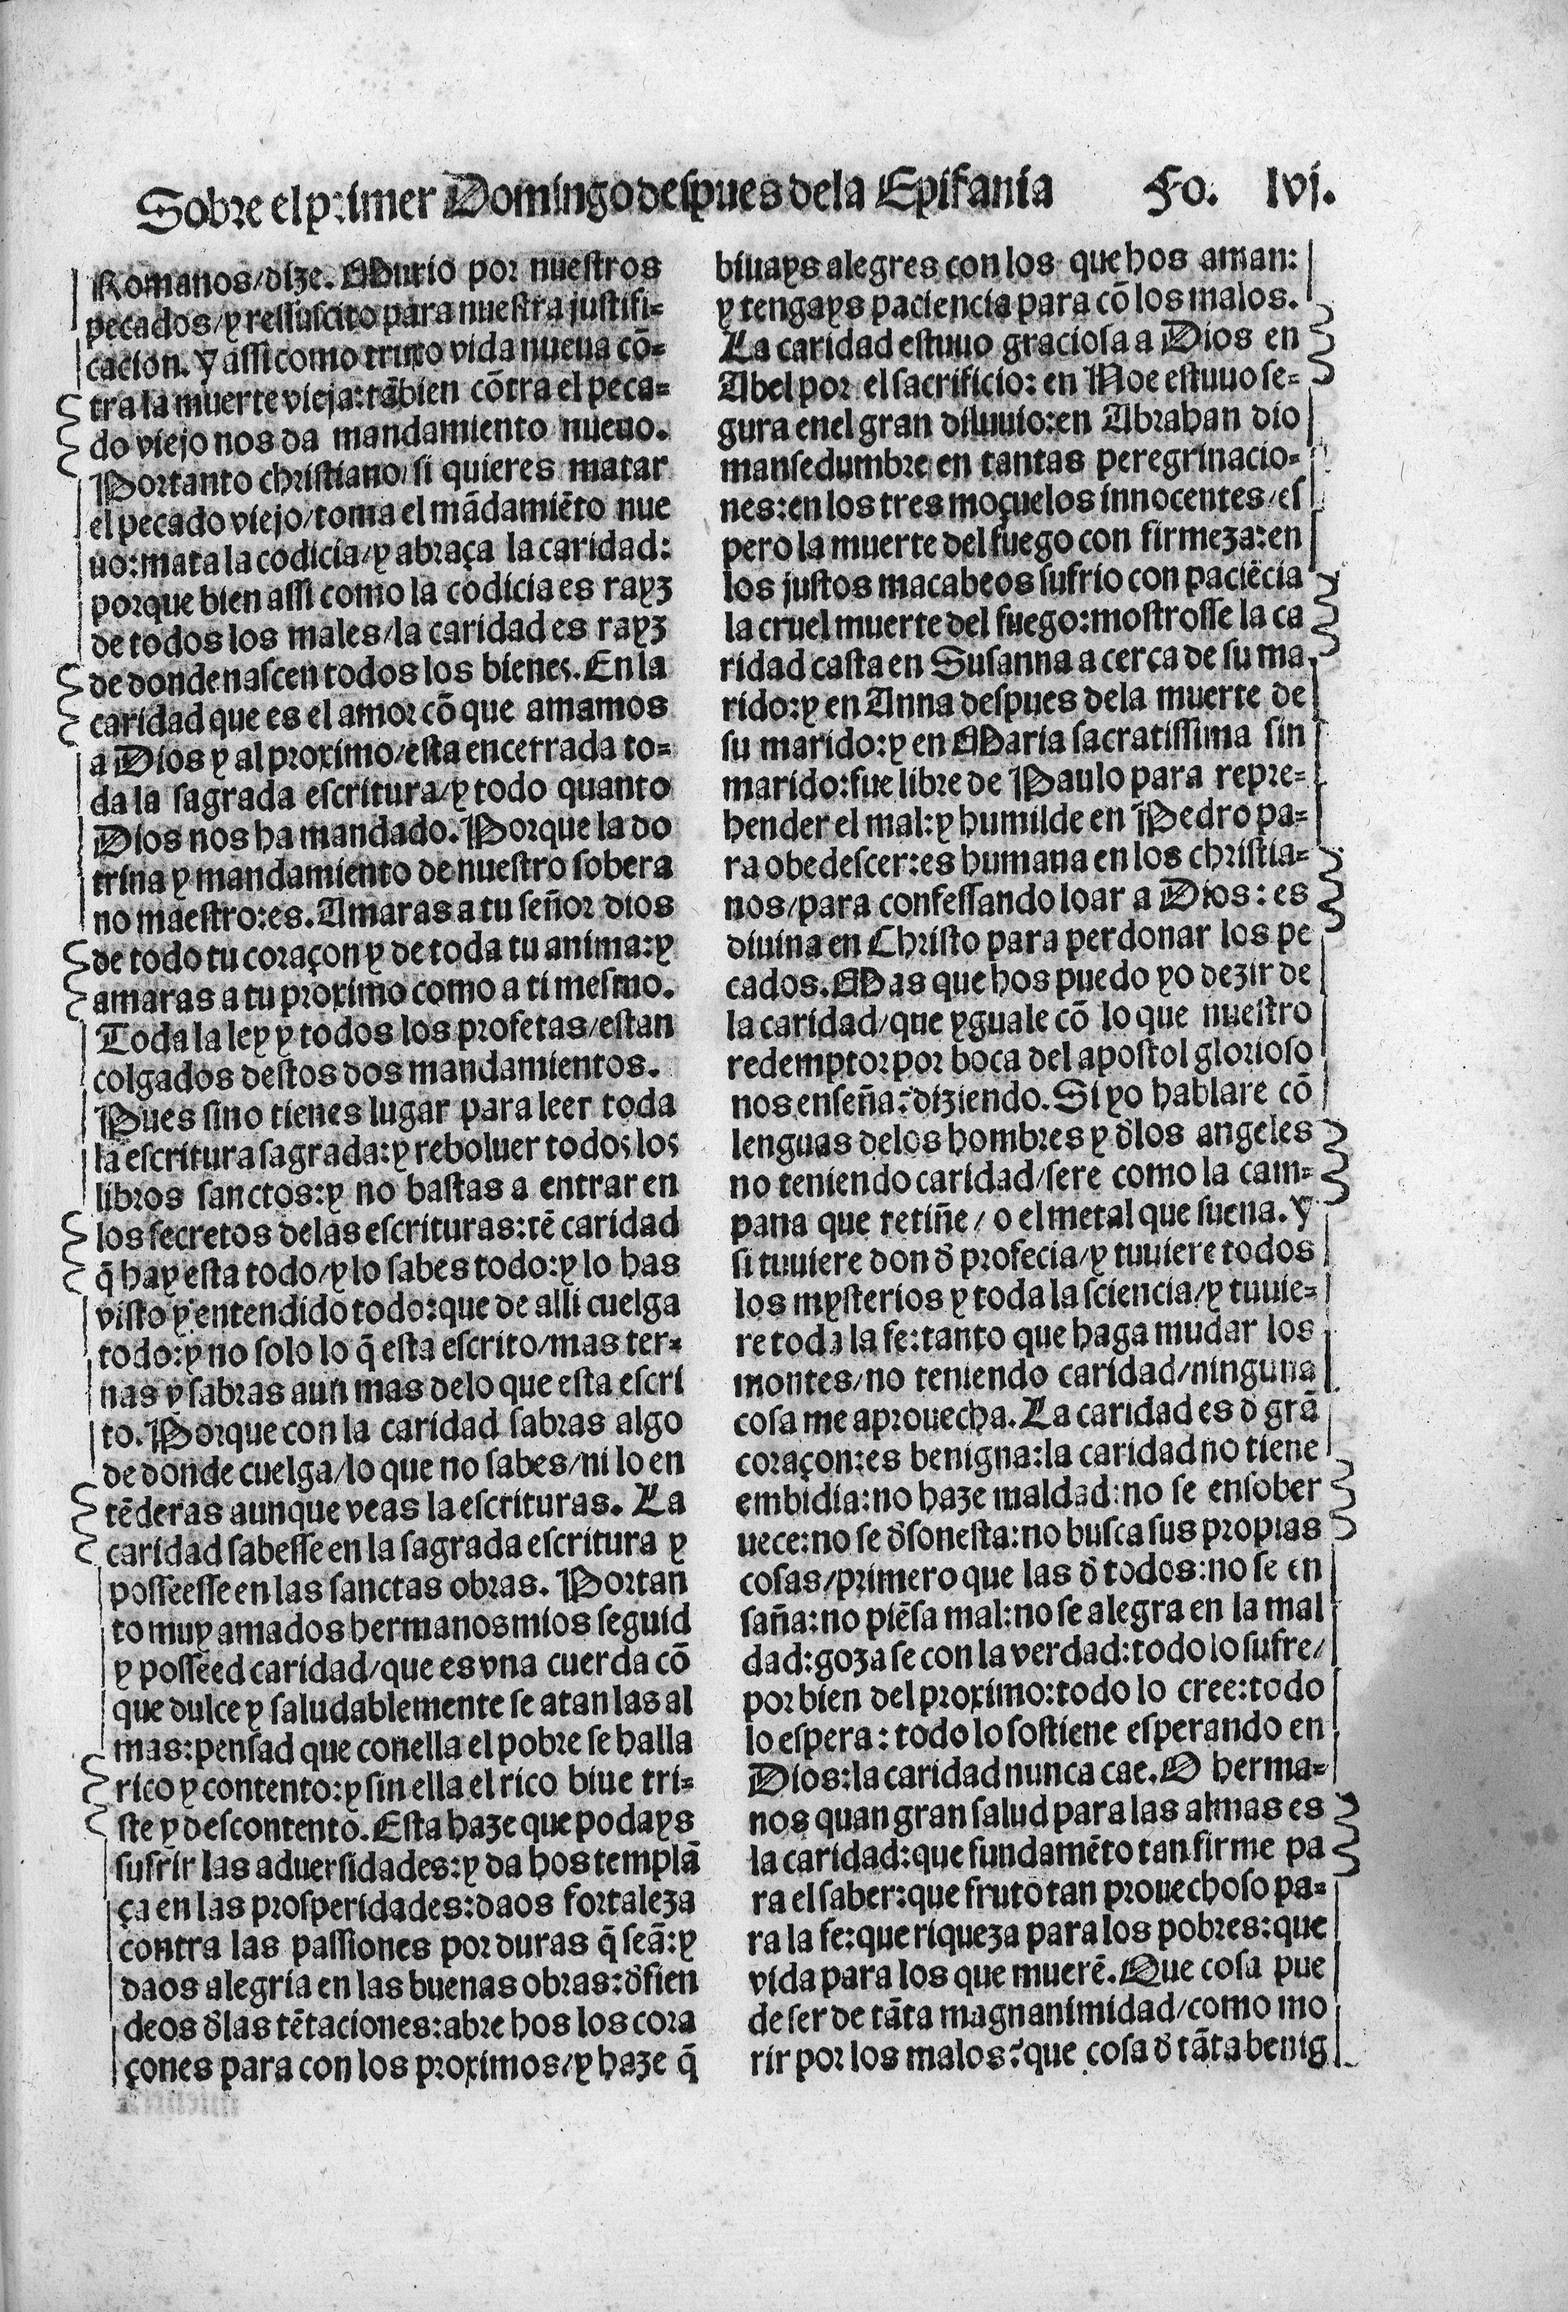 Sobre el primer Domingo despues dela Epifania Fo. lvj.
Romanos/dize. Murio por nuestros
pecados/y ressuscito para nuestra justifi-
cacion. Y assi como truxo vida nueua cō-
tra la muerte vieja: tābien cōtra el peca-
do viejo nos da mandamiento nueuo.
Portanto christiano/si quieres matar
el pecado viejo/toma el mādamiēto nue
uo: mata la codicia/y abraça la caridad:
porque bien assi como la codicia es rayz
de todos los males/la caridad es rayz
de donde nascen todos los bienes. En la
caridad que es el amor cō que amamos
a Dios y al proximo/esta encerrada to-
da la sagrada escritura/y todo quanto
Dios nos ha mandado. Porque la do
trina y mandamiento de nuestro sobera
no maestro: es. Amaras a tu señor dios
de todo tu coraçon y de toda tu anima: y
amaras a tu proximo como a ti mesmo.
Toda la ley y todos los profetas/estan
colgados destos dos mandamientos.
Pues sino tienes lugar para leer toda
la escritura sagrada: y reboluer todos los
libros sanctos: y no bastas a entrar en
los secretos delas escrituras: tē caridad
q̄ hay esta todo/y lo sabes todo: y lo has
visto y entendido todo: que de alli cuelga
todo: y no solo lo q̄ esta escrito/mas ter-
nas y sabras aun mas delo que esta escri
to. Porque con la caridad sabras algo
de donde cuelga/lo que no sabes/ni lo en
tēderas aunque veas la escrituras. La
caridad sabesse en la sagrada escritura y
posseesse en las sanctas obras. Portan
to muy amados hermanos mios seguid
y posseed caridad/que es vna cuerda cō
que dulce y saludablemente se atan las al
mas: pensad que conella el pobre se halla
rico y contento: y sin ella el rico biue tri-
ste y descontento. Esta haze que podays
sufrir las aduersidades: y da hos templā
ça en las prosperidades: daos fortaleza
contra las passiones por duras q̄ seā: y
daos alegria en las buenas obras: d̄fien
deos d̄las tētaciones: abre hos los cora
çones para con los proximos/y haze q̄
biuays alegres con los que hos aman:
y tengays paciencia para cō los malos.
La caridad estuuo graciosa a Dios en
Abel por el sacrificio: en Noe estuuo se-
gura enel gran diluuio: en Abrahan dio
mansedumbre en tantas peregrinacio-
nes: en los tres moçuelos innocentes/es
pero la muerte del fuego con firmeza: en
los justos macabeos sufrio con paciēcia
la cruel muerte del fuego: mostrosse la ca
ridad casta en Susanna a cerça de su ma
rido: y en Anna despues dela muerte de
su marido: y en Maria sacratissima sin
marido: fue libre de Paulo para repre-
hender el mal: y humilde en Pedro pa-
ra obedescer: es humana en los christia-
nos/para confessando loar a Dios: es
diuina en Christo para perdonar los pe
cados. Mas que hos puedo yo dezir de
la caridad/que yguale cō lo que nuestro
redemptor por boca del apostol glorioso
nos enseña? diziendo. Si yo hablare cō
lenguas delos hombres y d̄los angeles
no teniendo caridad/sere como la cam-
pana que retiñe/o el metal que suena. Y
si tuuiere don d̄ profecia/y tuuiere todos
los mysterios y toda la sciencia/y tuuie-
re toda la fe: tanto que haga mudar los
montes/no teniendo caridad/ninguna
cosa me aprouecha. La caridad es d̄ grā
coraçon: es benigna: la caridad no tiene
embidia: no haze maldad: no se ensober
uece: no se d̄sonesta: no busca sus propias
cosas/primero que las d̄ todos: no se en
saña: no piēsa mal: no se alegra en la mal
dad: goza se con la verdad: todo lo sufre/
por bien del proximo: todo lo cree: todo
lo espera: todo lo sostiene esperando en
Dios: la caridad nunca cae. O herma-
nos quan gran salud para las almas es
la caridad: que fundamēto tan firme pa
ra el saber: que fruto tan prouechoso pa-
ra la fe: que riqueza para los pobres: que
vida para los que muerē. Que cosa pue
de ser de tāta magnanimidad/como mo
rir por los malos? que cosa d̄ tāta benig